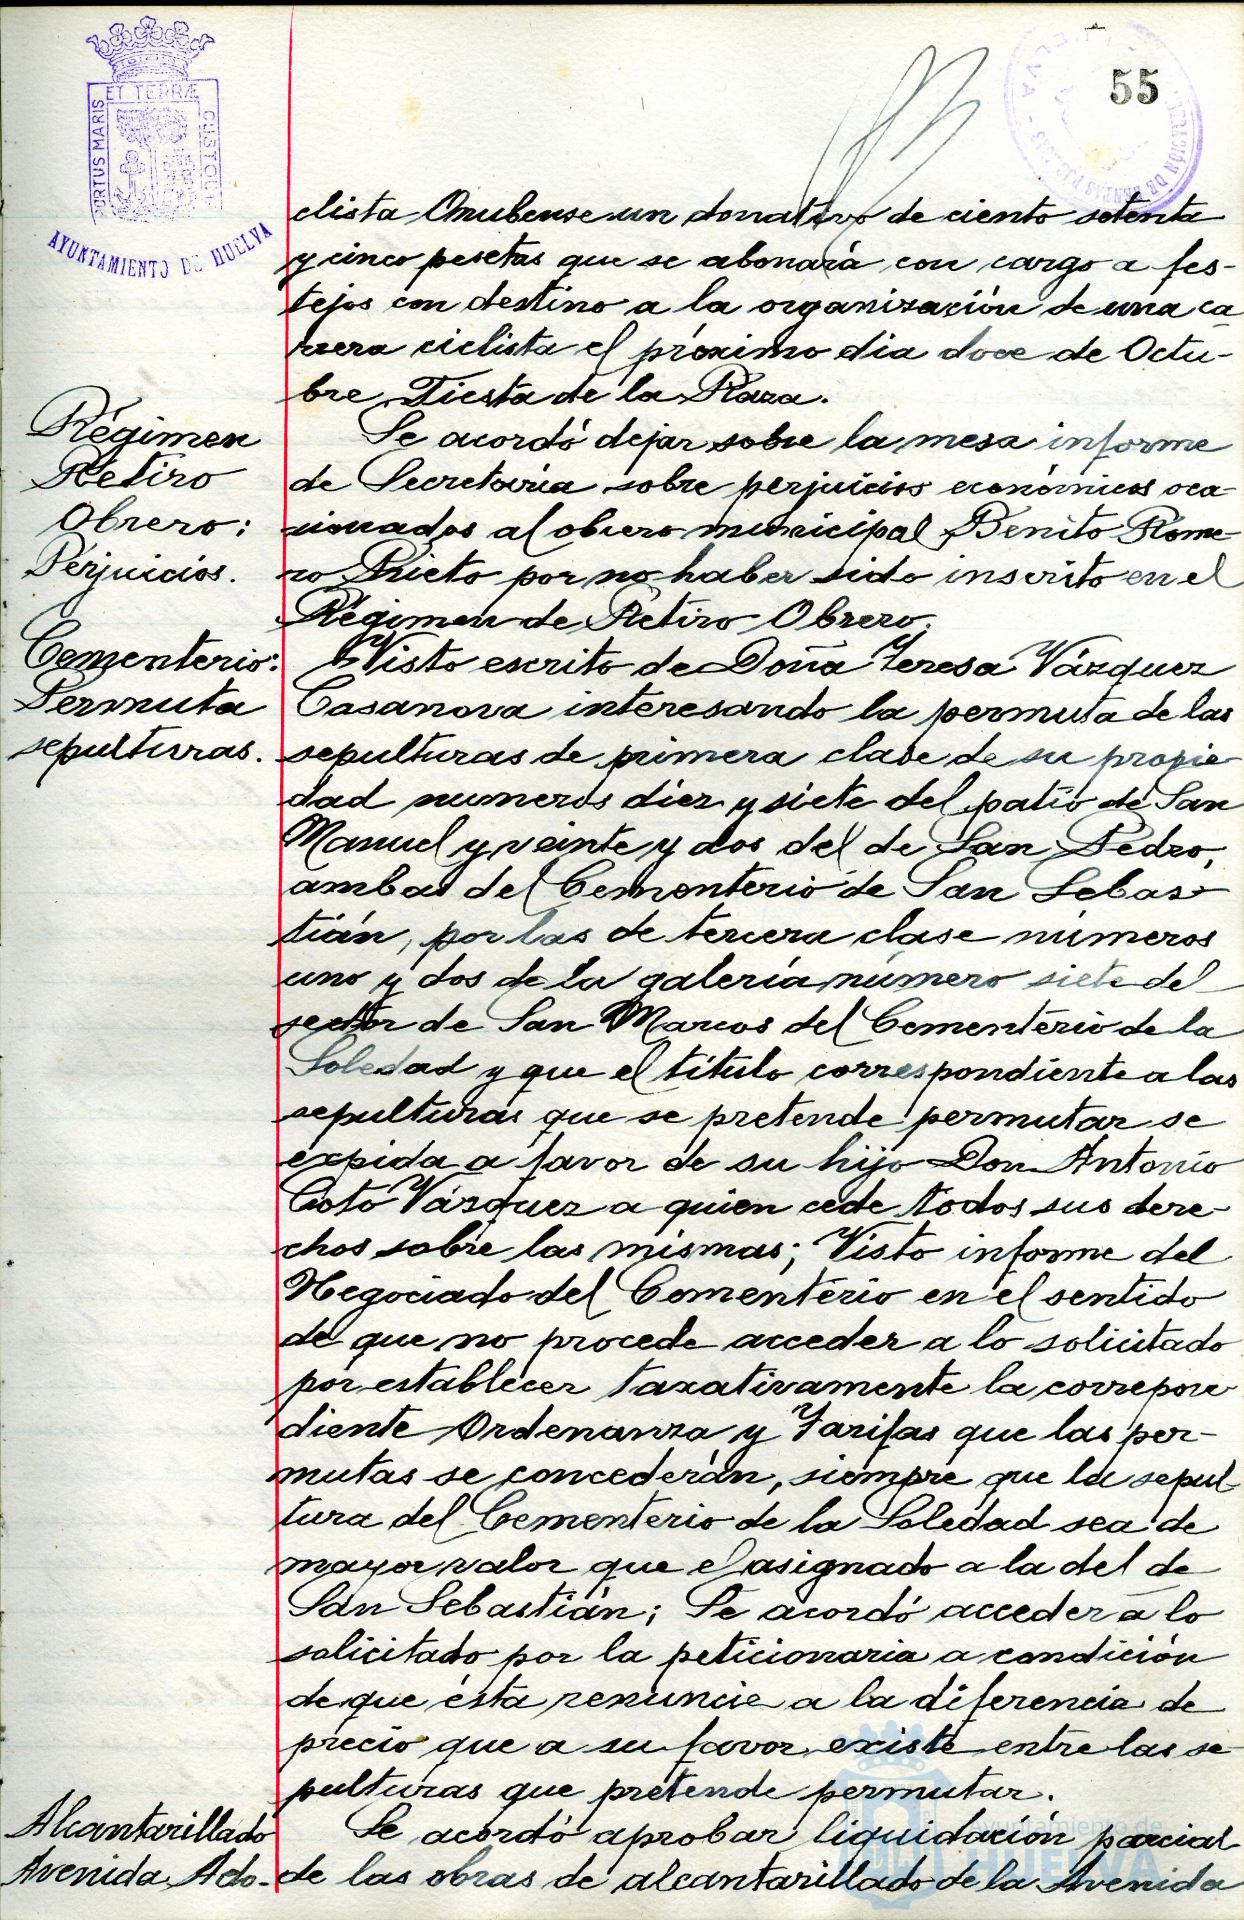 55
PORTUS MARIS ET TERRÆ CUSTODIA
AYUNTAMIENTO DE HUELVA
clista Onubense un donativo de ciento setenta
y cinco pesetas que se abonará con cargo a fes-
tejos con destino a la organización de una ca
rrera ciclista el próximo dia doce de Octu-
bre, Fiesta de la Raza.
Régimen
Retiro
Obrero:
Perjuicios.
Se acordó dejar sobre la mesa informe
de Secretaría sobre perjuicios económicos oca-
sionados al obrero municipal Benito Rome-
ro Prieto por no haber sido inscrito en el
Régimen de Retiro Obrero.
Cementerio:
Permuta
sepulturas.
Visto escrito de Doña Teresa Vázquez
Casanova interesando la permuta de las
sepulturas de primera clase de su propie
dad numeros diez y siete del patio de San
Manuel y veinte y dos del de San Pedro,
ambas del Cementerio de San Sebas-
tián, por las de tercera clase números
uno y dos de la galería número siete del
sector de San Marcos del Cementerio de la
Soledad y que el título correspondiente a las
sepulturas que se pretende permutar se
expida a favor de su hijo Don Antonio
Coto Vázquez a quien cede todos sus dere-
chos sobre las mismas; Visto informe del
Negociado del Cementerio en el sentido
de que no procede acceder a lo solicitado
por establecer taxativamente la correpon
diente Ordenanza y Tarifas que las per-
mutas se concederán, siempre que la sepul-
tura del Cementerio de la Soledad sea de
mayor valor que el asignado a la del de
San Sebastián; Se acordó acceder a lo
solicitado por la peticionaria a condición
de que ésta renuncie a la diferencia de
precio que a su favor existe entre las se
pulturas que pretende permutar.
Alcantarillado
Avenida Ado-
Se acordó aprobar liquidación parcial
de las obras de alcantarillado de la Avenida
Ayuntamiento de
HUELVA